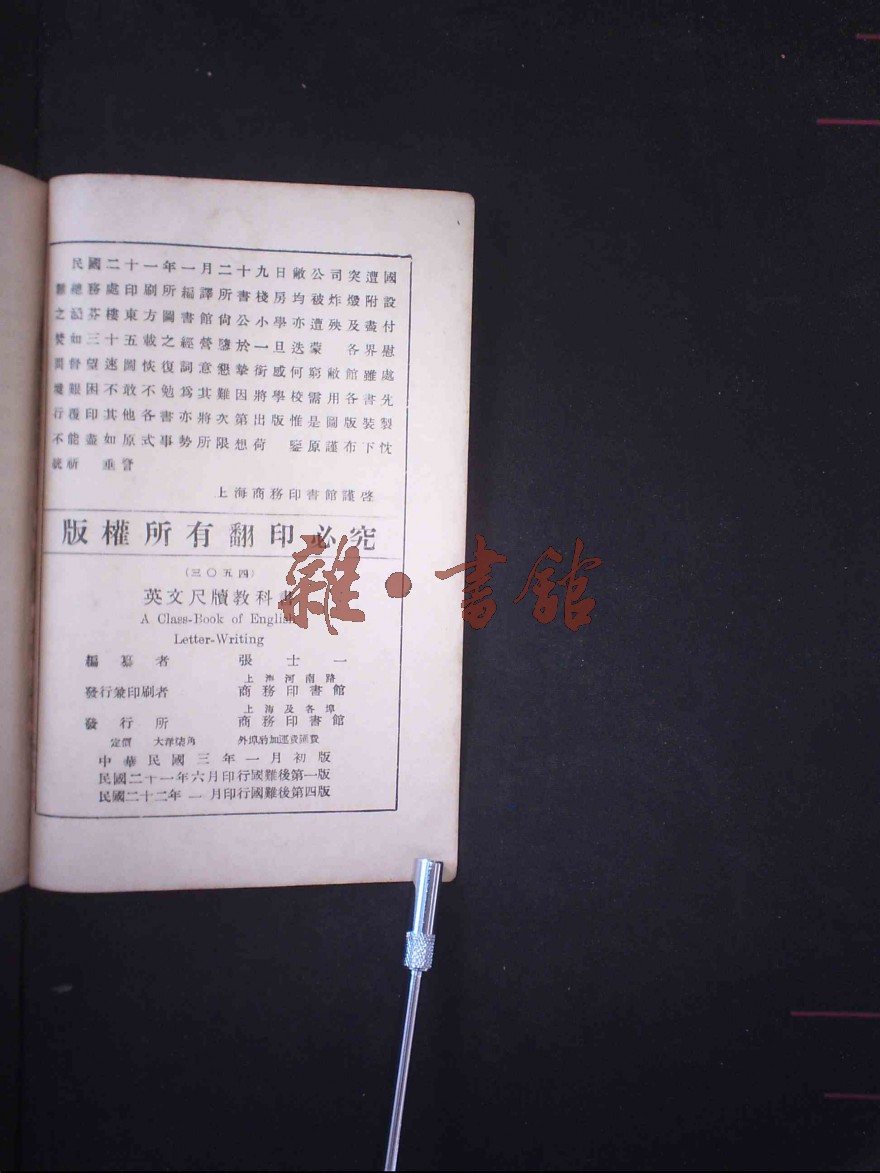 民國二十一年一月二十九日敝公司突遭國
難總務處印刷所編譯所書棧房均被炸燬附設
之涵芬樓東方圖書館尙公小學亦遭殃及盡付
焚如三十五載之經營墮於一旦迭蒙 各界慰
問督望速圖恢復詞意懇摯銜感何窮敝館雖處
境艱困不敢不勉爲其難因將學校需用各書先
行覆印其他各書亦將次第出版惟是圖版裝製
不能盡如原式事勢所限想荷 鑒原謹布下忱
統祈 垂詧
上海商務印書館謹啓
版權所有翻印必究
(三〇五四)
英文尺牘教科書
A Class-Book of English
Letter-Writing
編纂者 張士一
上海河南路
發行兼印刷者 商務印書館
上海及各埠
發行所 商務印書館
定價 大洋柒角 外埠酌加運費匯費
中華民國三年一月初版
民國二十一年六月印行國難後第一版
民國二十二年一月印行國難後第四版
雜·書館